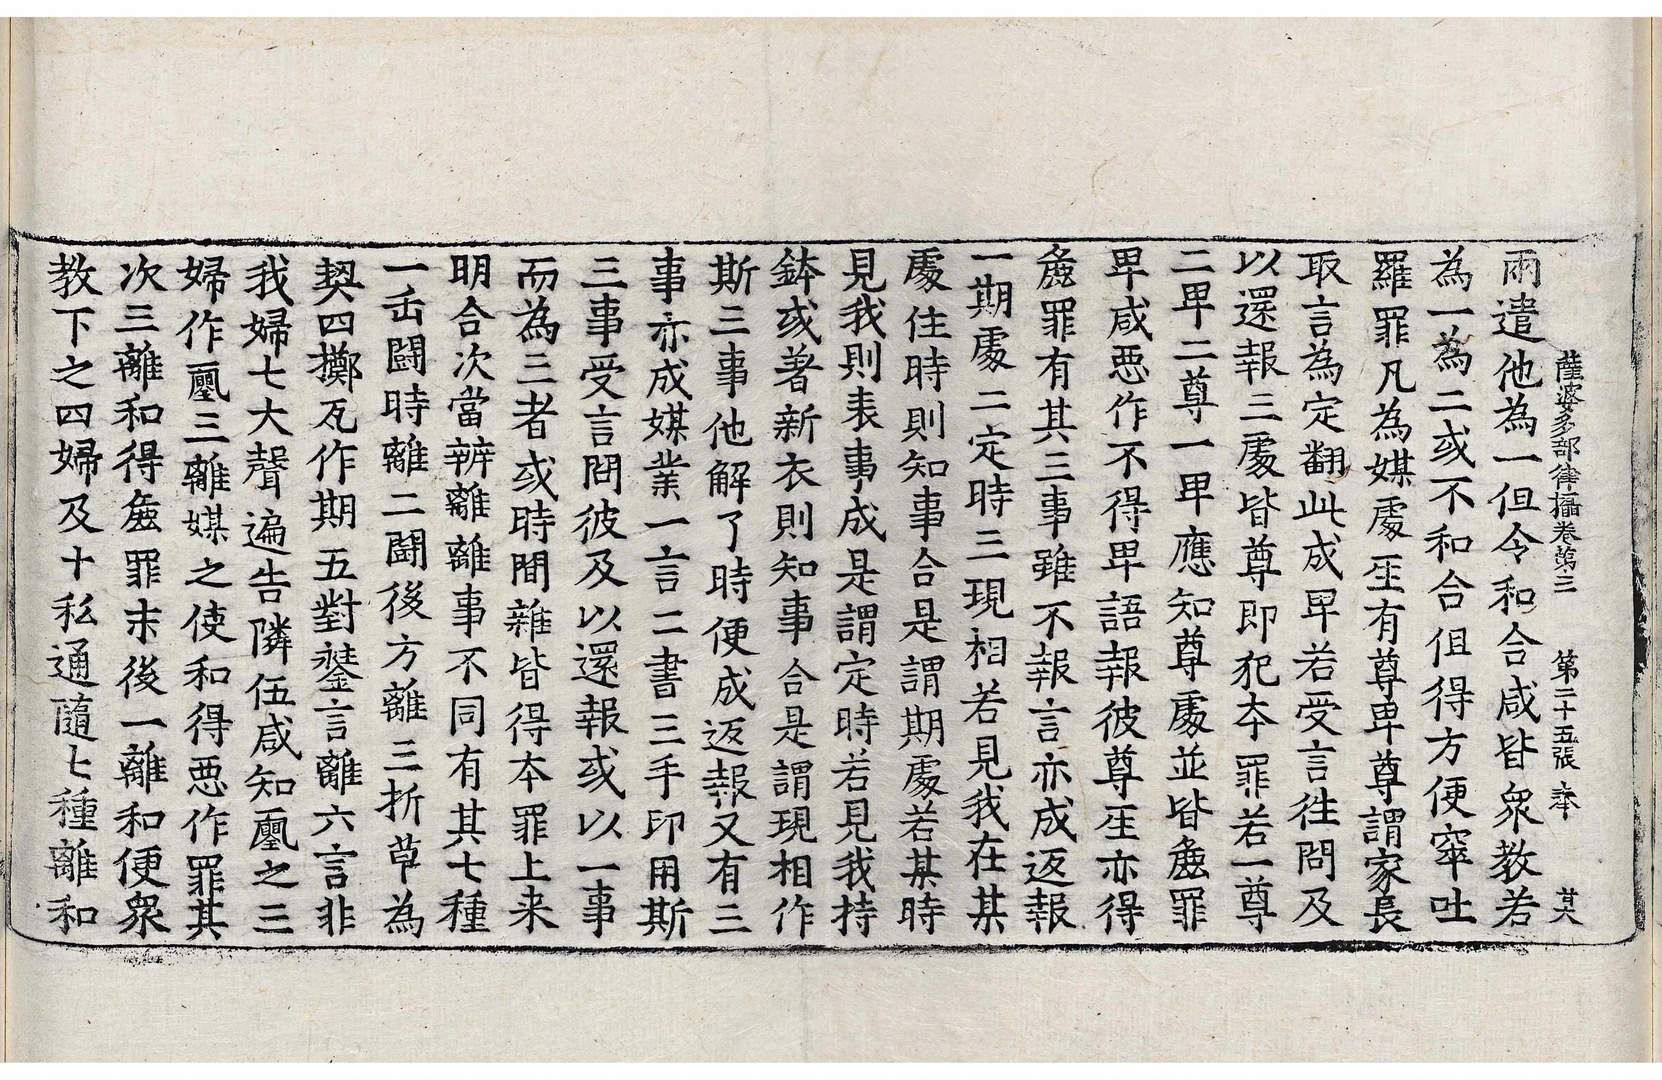 薩婆多部律攝卷第三　第二十五張　夲　甚
兩遣他為一但令和合咸皆眾教若
為一為二或不和合但得方便窣吐
羅罪凡為媒處𤯔有尊卑尊謂家長
取言為定翻此成卑若受言往問及
以還報三處皆尊即犯夲罪若一尊
二卑二尊一卑應知尊處並皆麁罪
卑咸惡作不得卑語報彼尊𤯔亦得
麁罪有其三事雖不報言亦成返報
一期處二定時三現相若見我在某
處住時則知事合是謂期處若某時
見我則表事成是謂定時若見我持
鉢或著新衣則知事合是謂現相作
斯三事他解了時便成返報又有三
事亦成媒業一言二書三手印用斯
三事受言問彼及以還報或以一事
而為三者或時間雜皆得夲罪上来
明合次當辨離離事不同有其七種
一𠙺鬪時離二鬪後方離三折草為
契四擲瓦作期五對𨭻言離六言非
我婦七大聲遍告隣伍咸知𡔈之三
婦作𡔈三離媒之使和得惡作罪其
次三離和得麁罪末後一離和便眾
教下之四婦及十私通隨七種離和